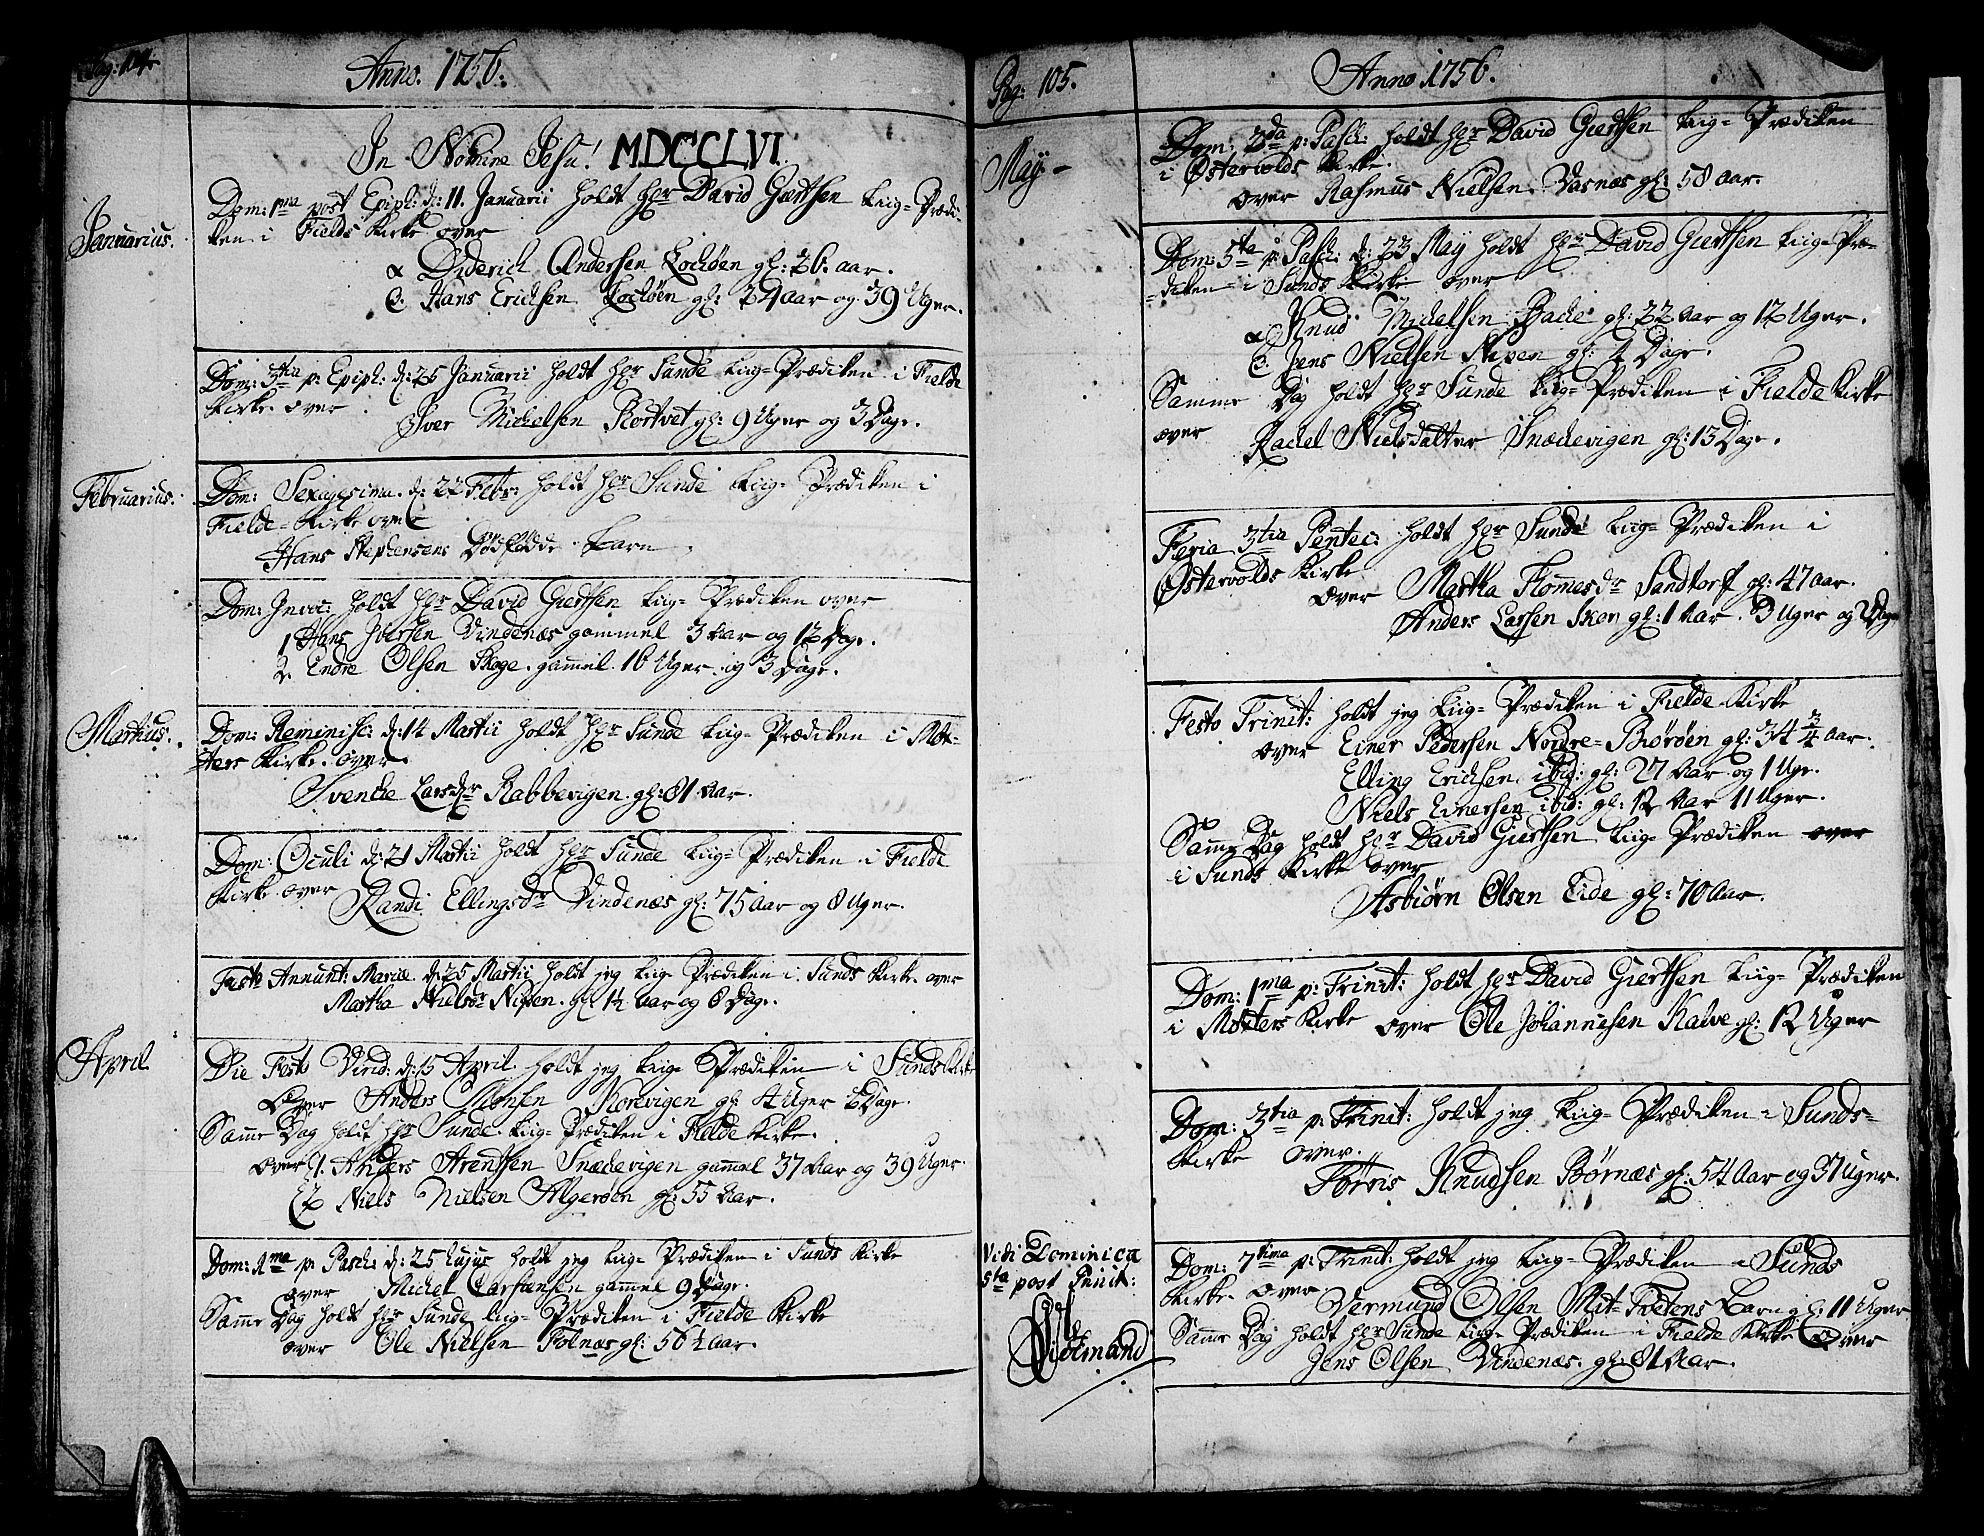 Pag: 104.
Anno. 1756.
In Nomine Jesu! MDCCLVI.
Januarius.
Dom: 1ma post Epiph: d: 11. Januarii holdt Hr David Giertsen Liig= Prædi-
ken i Fields Kirke over
α Diderich Andersen Lochøen gl: 26. aar.
β. Hans Erichsen Lochøen gl: 24 Aar og 39 Uger.
Dom: 3tia p: Epiph: d: 25 Januarii holdt Hr Sunde Liig= Prædiken i Fielde
Kirke over
Iver Michelsen Kortvet gl: 9 Uger og 3 Dage.
Februarius.
Dom: Sexagesima. d: 22 Febr: holdt Hr Sunde Liig= Prædiken i
Fielde= Kirke over
Hans Stephensens Dødfødde Barn.
Dom: Invoc: holdt Hr David Giertsen Liig= Prædiken over
1 Hans Iversen Vindenæs gammel 3 Aar og 12 Dage.
2. Endre Olsen Skoge. gammel. 16 Uger og 3 Dage.
Martius.
Dom: Reminisc: d: 14 Martii holdt Hr Sunde Liig= Prædiken i Møc-
sters Kirke. over
Svenche Larsdr Rabbevigen. gl: 81 Aar.
Dom: Oculi d: 21 Martii holdt Hr Sunde Liig= Prædiken i Fielde
Kirke over
Randi Ellingsdr Vindenæs gl: 75 Aar og 8 Uger.
Festo Annunt: Mariæ d: 25 Martii holdt jeg Liig= Prædiken i Sunds Kirke over
Martha Nielsdr Nipen. gl: 14 Aar og 8 Dage.
April.
Die Festo Virid: d: 15 April. holdt jeg Liig= Prædiken i Sunds Kirke
Over Anders Korevigen gl: 4 Uger 6 Dage.
Samme Dag holdt Hr Sunde. Liig= Prædiken i Fielde Kirke.
over 1. Anders Arentsen Snædevigen gammel 37 Aar og 39 Uger.
2 Niels Nielsen Algerøen gl: 55 Aar.
Dom: 1ma p: Pasch: d: 25 hujus holdt jeg Liig= Prædiken i Sunds Kirke
over Michel Carstensen gammel 9 Dage.
Samme Dag holdt Hr Sunde Liig= Prædiken i Fielde Kirke
over Ole Nielsen Tolnæs gl: 56 ½ Aar.
Pag: 105.
Anno 1756.
May –
Dom: 2da p: Pasch: holdt Hr David Giertsen Liig= Prædiken
i Østervolds Kirke.
over Rasmus Nielsen. Vasnæs gl: 58 Aar.
Dom: 5ta p: Pasch: d: 23 May holdt Hr David Giertsen Liig= Præ-
=diken= i Sunds Kirke over
α Knud Michelsen Bache gl: 22 Aar og 12 Uger.
β. Jens Nielsen Nipen gl: 2 Dage.
Samme Dag holdt Hr Sunde Liig= Prædiken i Fielde Kirke
over Rachel Nielsdatter Snædevigen gl: 13 Dage.
Feria 3tia Pentec: holdt Hr Sunde Liig= Prædiken i
Østervolds Kirke
over Martha Tlomesdr Sandtorf gl: 47 Aar.
Anders Larsen Skor gl: 1 Aar. 3 Uger og 2 Dage
Festo Trinit: holdt jeg Liig= Prædiken i Fielde Kirke
over Einer Pedersen Nordre= Biørøen gl: 34 3/4 Aar.
Elling Erichsen. ibid: gl: 27 Aar og 1 Uge.
Niels Einersen ibid: gl: 12 Aar 11 Uger.
Samme Dag holdt Hr David Giertsen Liig= Prædiken over
i Sunds Kirke over
Asbiørn Olsen Eide gl: 70 Aar.
Dom: 1ma p: Trinit: holdt Hr David Giertsen Liig= Prædiken
i Møxters Kirke over Ole Johannesen Kalve gl: 12 Uger
Dom: 3tia p: Trinit: holdt jeg Liig= Prædiken i Sunds=
Kirke over.
Tørris Knudsen Børnæs gl: 54 Aar og 37 Uger.
Vidi Dominica
5ta post Trinit:
Dom: 7tima p: Trinit: holdt jeg Liig= Prædiken i Sunds
Kirke over
Vermund Olsen Mit= Tvetens Barn gl: 11 Uger
Samme Dag holdt Hr Sunde Liig= Prædiken i Fielde Kirke Over
Jens Olsen Vindenæs. gl: 81 Aar.